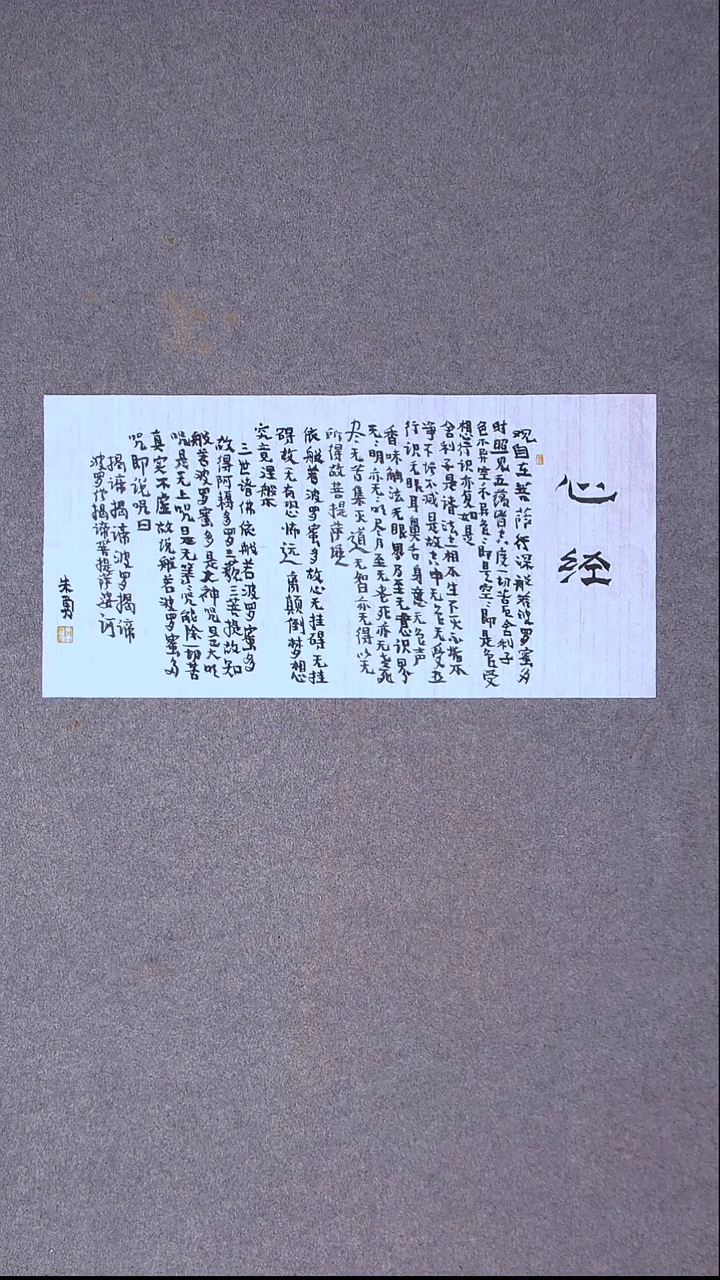 心经
观自在菩萨行深般若波罗蜜多
时照见五蕴皆空度一切苦厄舍利子
色不异空空不异色色即是空空即是色受
想行识亦复如是
舍利子是诸法空相不生不灭不垢不
净不增不减是故空中无色无受五
行识无眼耳鼻舌身意无色声
香味触法无眼界乃至无意识界
无无明亦无无明尽乃至无老死亦无老死
尽无苦集灭道无智亦无得以无
所得故菩提萨埵
依般若波罗蜜多故心无挂碍无挂
碍故无有恐怖远离颠倒梦想
究竟涅槃
三世诸佛依般若波罗蜜多
故得阿耨多罗三藐三菩提故知
般若波罗蜜多是大神咒是大明
咒是无上咒是无等咒能除一切苦
真实不虚故说般若波罗蜜多
咒即说咒曰
揭谛揭谛波罗揭谛
波罗僧揭谛菩提萨婆诃
朱勇